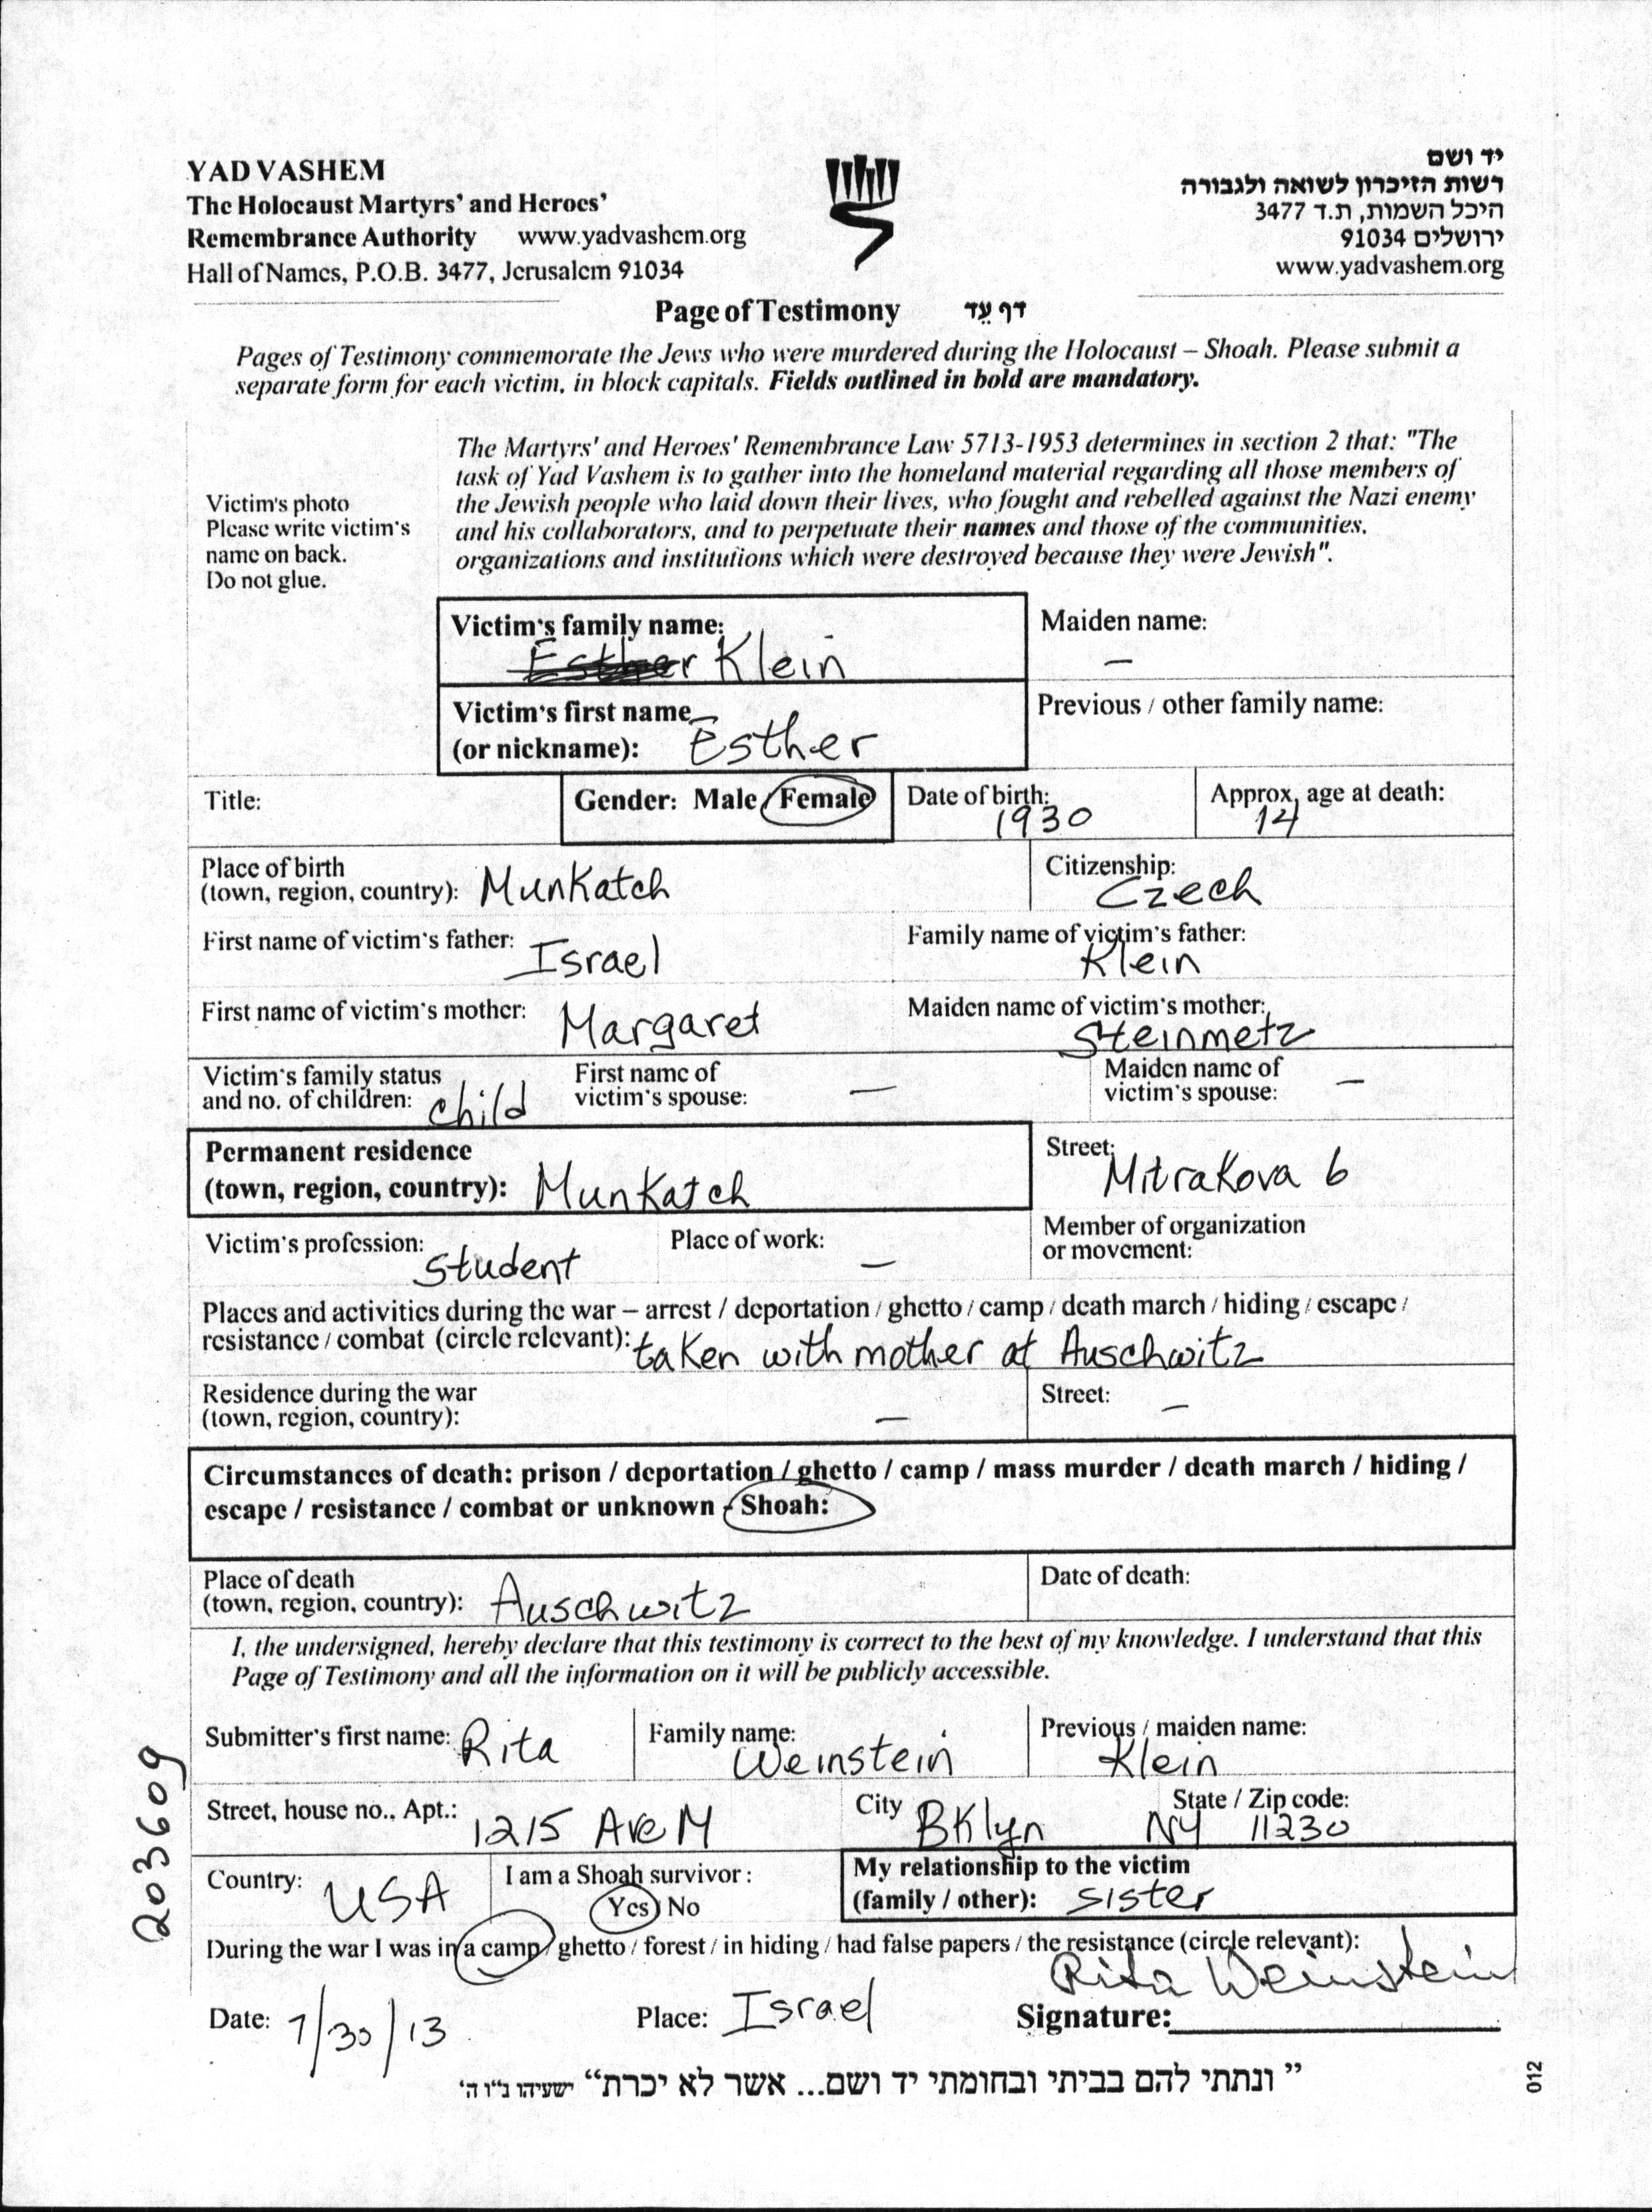 YAD VASHEM
The Holocaust Martyrs' and Heroes'
Remembrance Authority www.yadvashem.org
Hall of Names, P.O.B. 3477, Jerusalem 91034
יד ושם
רשות הזיכרון לשואה ולגבורה
היכל השמות, ת.ד 3477
ירושלים 91034
www.yadvashem.org
Page of Testimony דף עֵד
Pages of Testimony commemorate the Jews who were murdered during the Holocaust – Shoah. Please submit a
separate form for each victim, in block capitals. Fields outlined in bold are mandatory.
Victim's photo
Please write victim's
name on back.
Do not glue.
The Martyrs' and Heroes' Remembrance Law 5713-1953 determines in section 2 that: "The
task of Yad Vashem is to gather into the homeland material regarding all those members of
the Jewish people who laid down their lives, who fought and rebelled against the Nazi enemy
and his collaborators, and to perpetuate their names and those of the communities,
organizations and institutions which were destroyed because they were Jewish".
Victim's family name:
Esther Klein
Maiden name:
—
Victim's first name
(or nickname): Esther
Previous / other family name:
Title:
Gender: Male / Female
Date of birth:
1930
Approx. age at death:
14
Place of birth
(town, region, country): Munkatch
Citizenship:
Czech
First name of victim's father: Israel
Family name of victim's father:
Klein
First name of victim's mother: Margaret
Maiden name of victim's mother:
Steinmetz
Victim's family status
and no. of children: child
First name of
victim's spouse: —
Maiden name of
victim's spouse: —
Permanent residence
(town, region, country): Munkatch
Street:
Mitrakova 6
Victim's profession: Student
Place of work: —
Member of organization
or movement:
Places and activities during the war – arrest / deportation / ghetto / camp / death march / hiding / escape /
resistance / combat (circle relevant): taken with mother at Auschwitz
Residence during the war
(town, region, country): —
Street: —
Circumstances of death: prison / deportation / ghetto / camp / mass murder / death march / hiding /
escape / resistance / combat or unknown - Shoah:
Place of death
(town, region, country): Auschwitz
Date of death:
I, the undersigned, hereby declare that this testimony is correct to the best of my knowledge. I understand that this
Page of Testimony and all the information on it will be publicly accessible.
Submitter's first name: Rita
Family name:
Weinstein
Previous / maiden name:
Klein
Street, house no., Apt.: 1215 Ave M
City BKlyn
State / Zip code:
NY 11230
Country: USA
I am a Shoah survivor:
Yes / No
My relationship to the victim
(family / other): sister
During the war I was in a camp / ghetto / forest / in hiding / had false papers / the resistance (circle relevant):
Rita Weinstein
Date: 7/30/13
Place: Israel
Signature:
” ונתתי להם בביתי ובחומתי יד ושם... אשר לא יכרת“ ישעיהו נ"ו ה'
203609
012